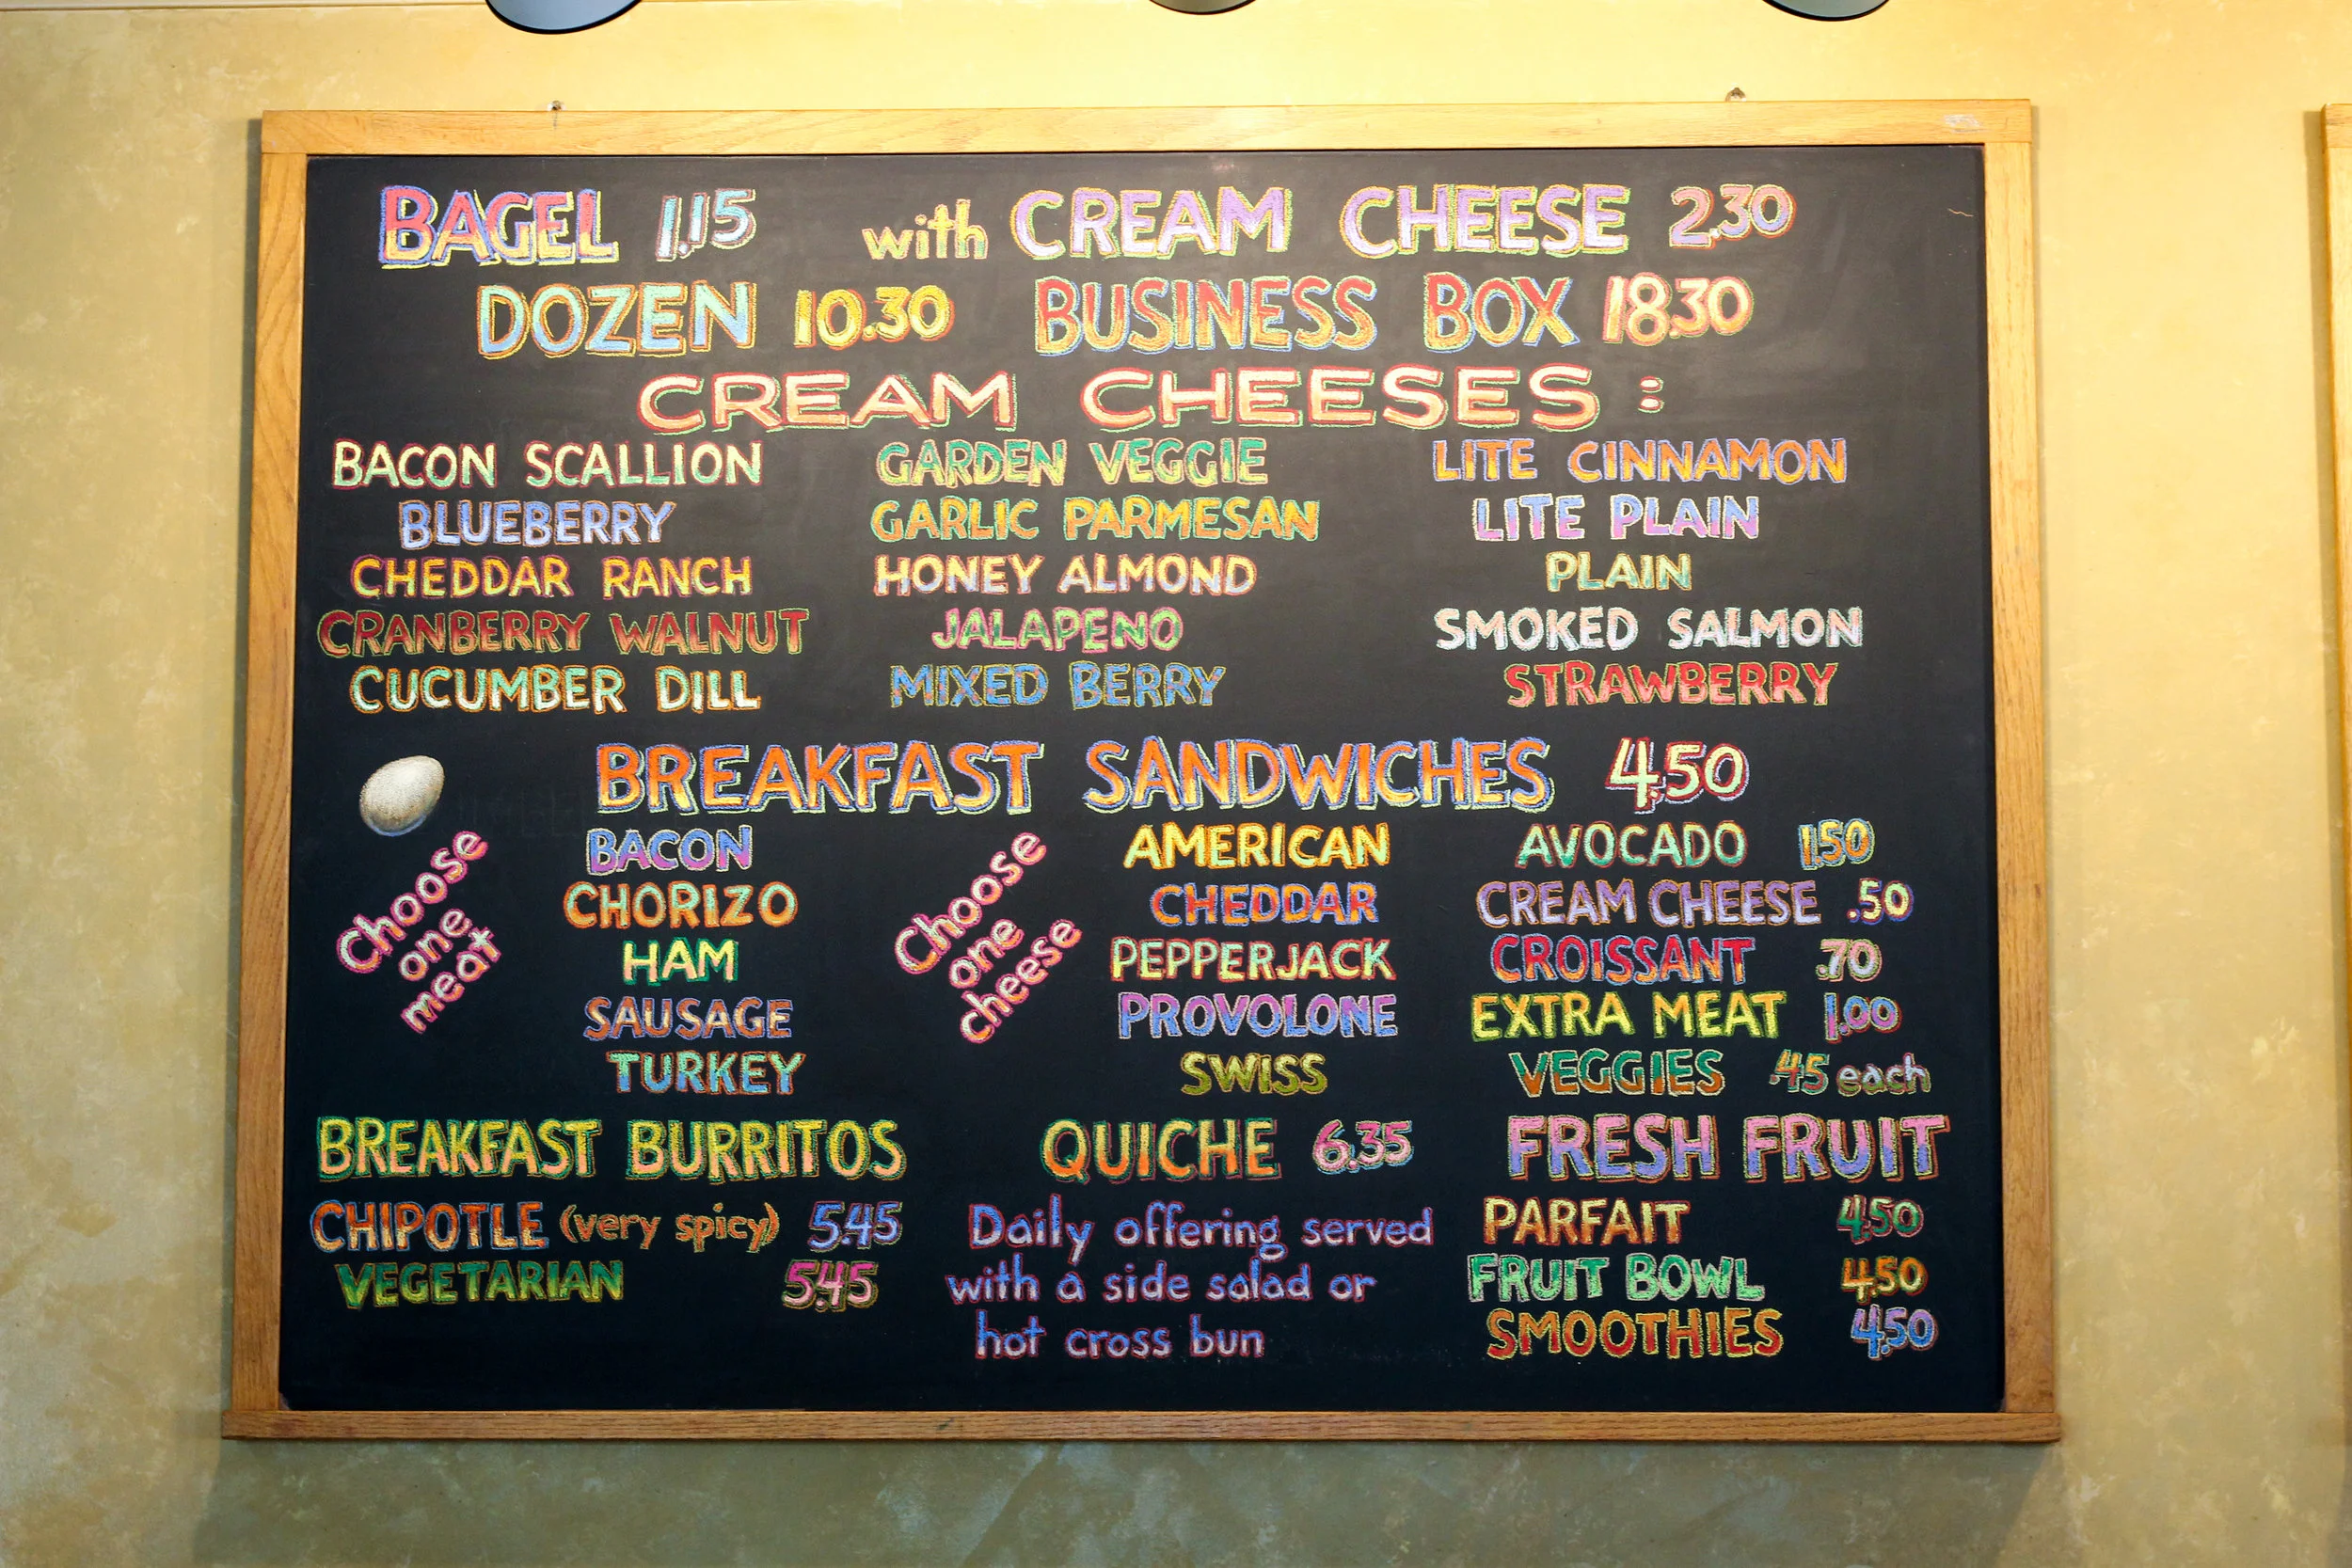 BAGEL 1.15 with CREAM CHEESE 2.30
DOZEN 10.30 BUSINESS BOX 18.30
CREAM CHEESES:
BACON SCALLION
BLUEBERRY
CHEDDAR RANCH
CRANBERRY WALNUT
CUCUMBER DILL
GARDEN VEGGIE
GARLIC PARMESAN
HONEY ALMOND
JALAPENO
MIXED BERRY
LITE CINNAMON
LITE PLAIN
PLAIN
SMOKED SALMON
STRAWBERRY
BREAKFAST SANDWICHES 4.50
Choose
one
meat
BACON
CHORIZO
HAM
SAUSAGE
TURKEY
Choose
one
cheese
AMERICAN
CHEDDAR
PEPPERJACK
PROVOLONE
SWISS
AVOCADO 1.50
CREAM CHEESE .50
CROISSANT .70
EXTRA MEAT 1.00
VEGGIES .45 each
BREAKFAST BURRITOS
CHIPOTLE (very spicy) 5.45
VEGETARIAN 5.45
QUICHE 6.35
Daily offering served
with a side salad or
hot cross bun
FRESH FRUIT
PARFAIT 4.50
FRUIT BOWL 4.50
SMOOTHIES 4.50